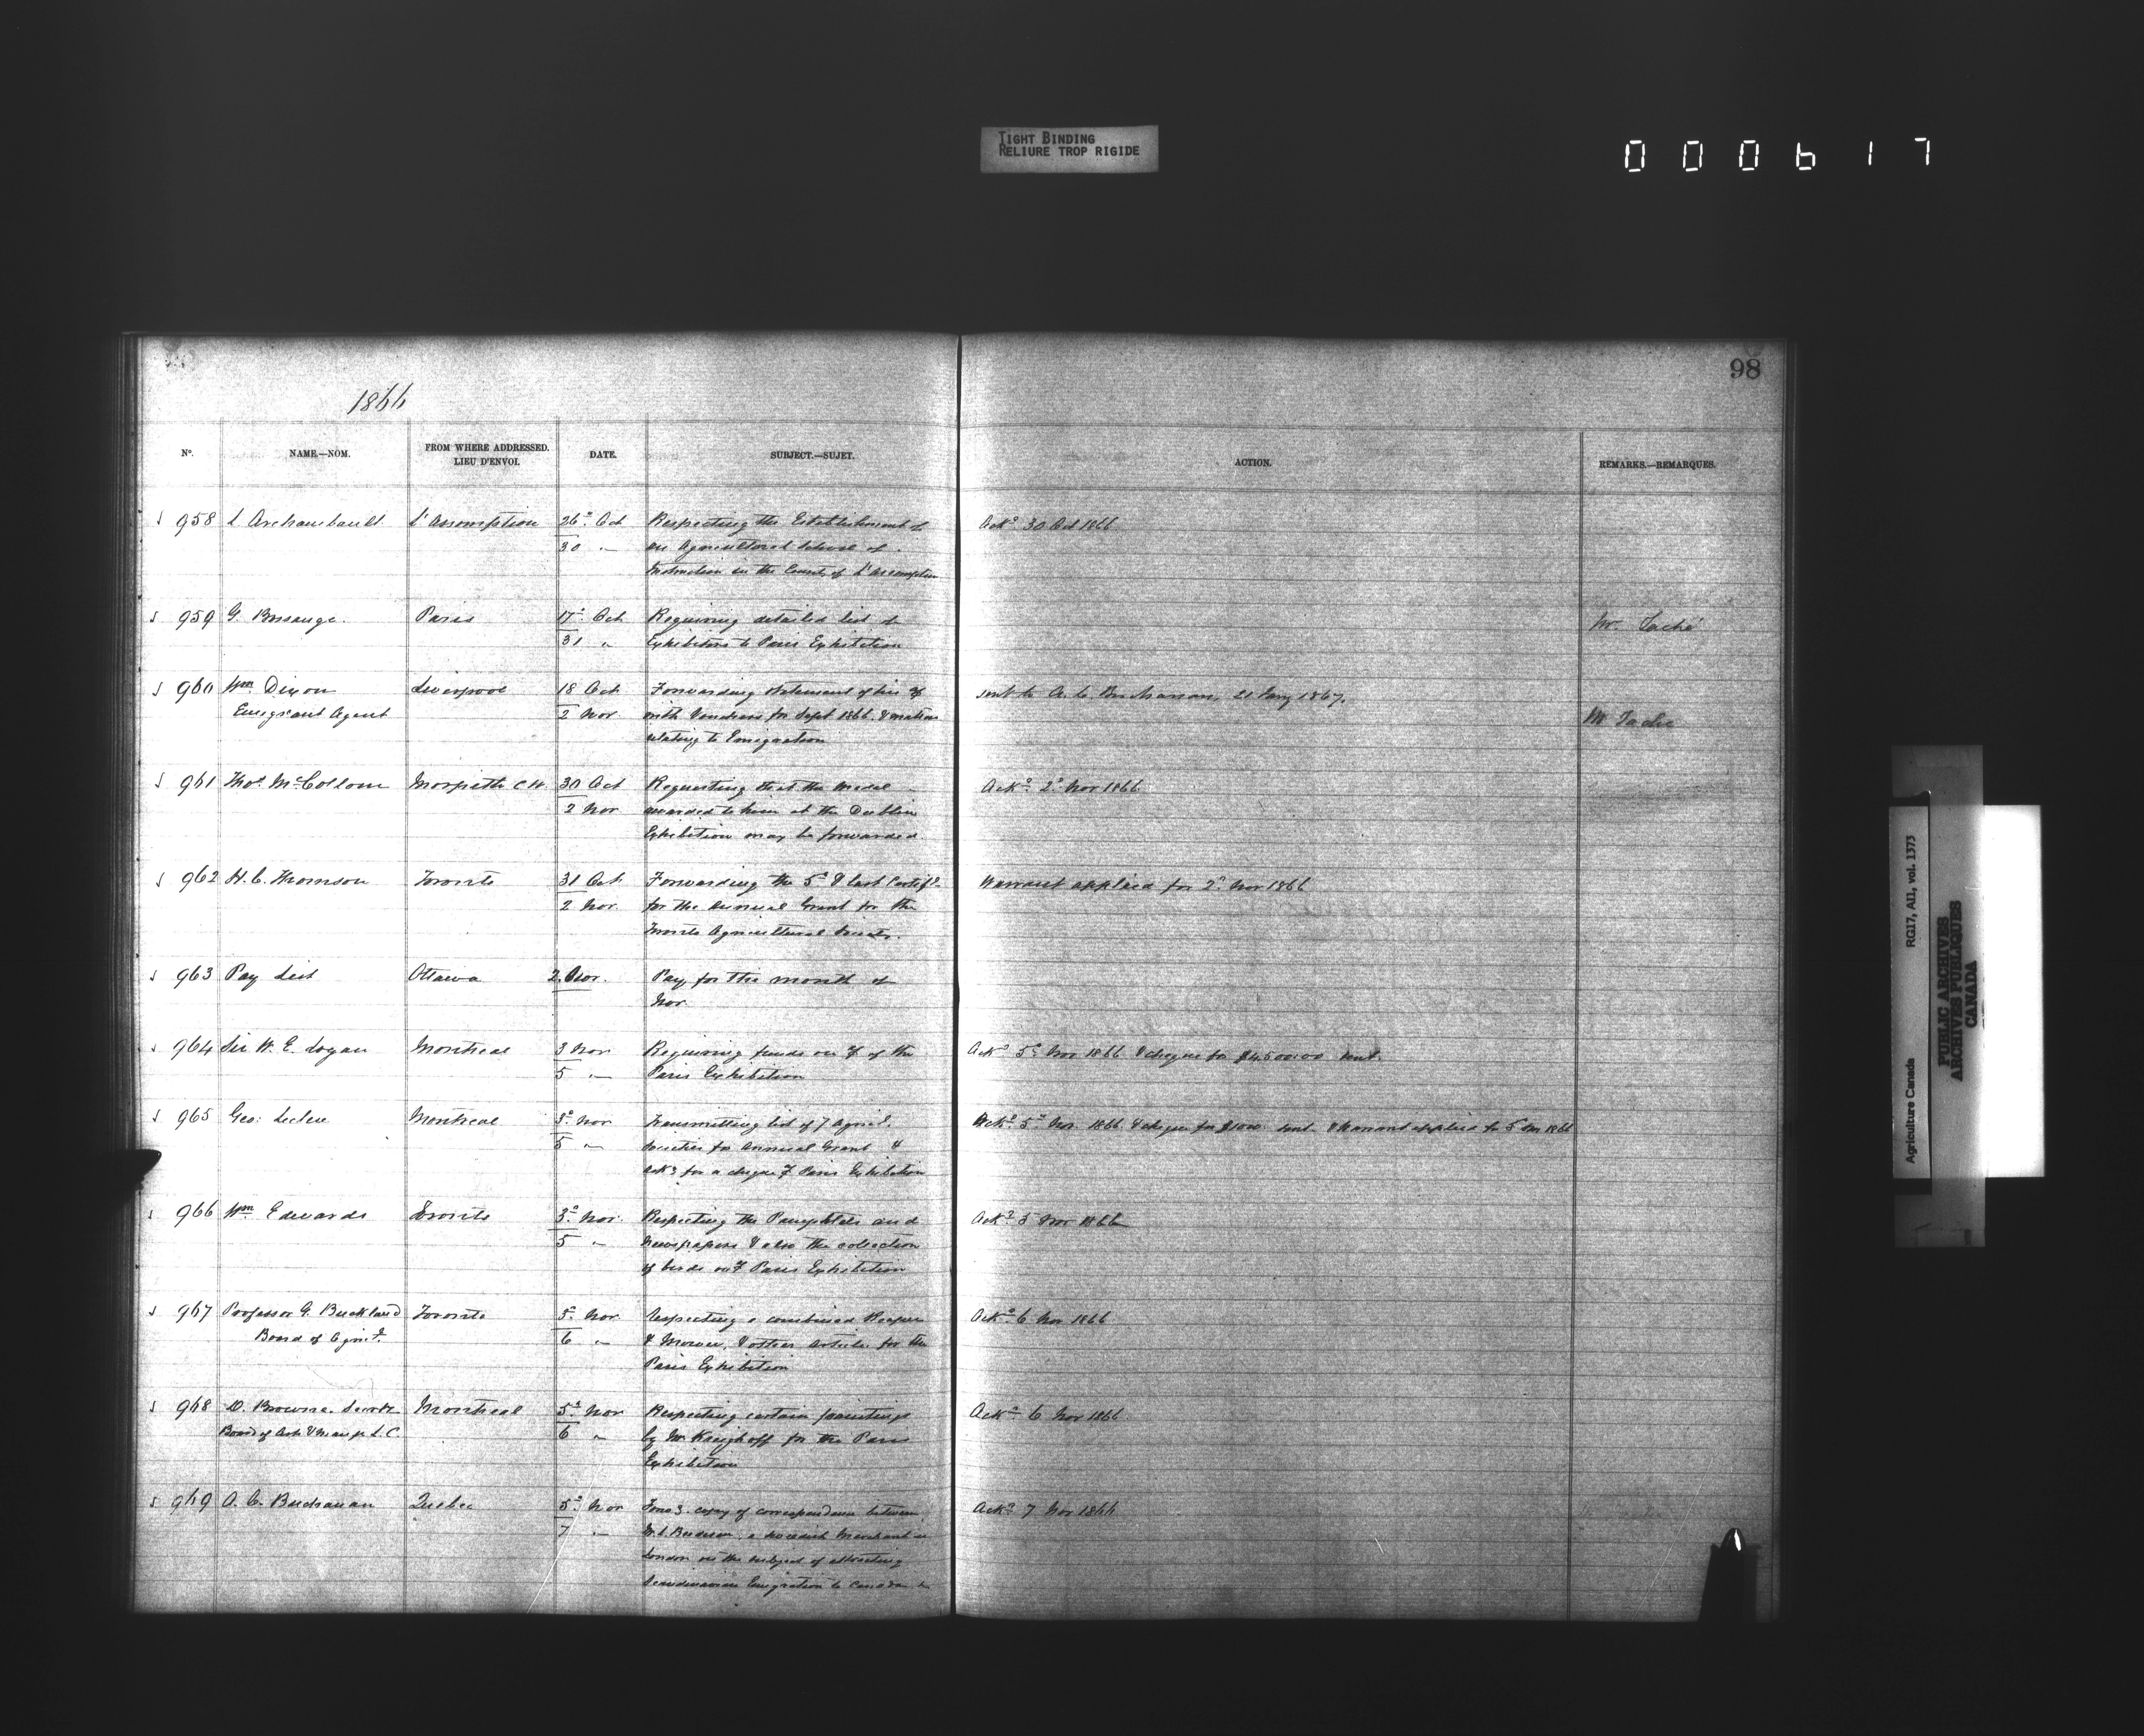 TIGHT BINDING
RELIURE TROP RIGIDE
000617
98
1866
No. NAME.—NOM. FROM WHERE ADDRESSED. LIEU D'ENVOI. DATE. SUBJECT.—SUJET. ACTION. REMARKS.—REMARQUES.
958 L. Archambault L'Assomption 26th Oct Respecting the Establishment of Ackd 30 Oct 1866
30 " an Agricultural School of
Instruction in the County of L'Assomption
959 G. Bossange Paris 17th Oct Requiring detailed list of Mr. Taché
31 " Exhibitors to Paris Exhibition
960 Wm Dixon Liverpool 18 Oct Forwarding statement of his sent to A. C. Buchanan, 21 Jany 1867.
Emigrant Agent 2 Nov with Vouchers for Sept 1866 & Mr Taché
relating to Emigration
961 Thos McCollom Morpeth C.W. 30 Oct Requesting that the Medal Ackd 2d Nov 1866
2 Nov awarded to him at the Dublin
Exhibition may be forwarded
962 H. C. Thomson Toronto 31 Oct Forwarding the 5th & last Certife Warrant applied for 2d Nov 1866
2 Nov for the Annual Grant for the
Toronto Agricultural Society.
963 Pay List Ottawa 2 Nov. Pay for the month of
Nov
964 Sir W. E. Logan Montreal 3 Nov Requiring funds on % of the Ackd 5th Nov 1866 & cheque for $4500.00 sent.
5 " Paris Exhibition
965 Geo: Leclere Montreal 3d Nov Transmitting list of 7 Agricl Ackd 5th Nov 1866 & cheque for $1000 sent & Warrant applied for 5 Nov 1866
5 " Societies for Annual Grant &
Ackg for a cheque % Paris Exhibition
966 Wm Edwards Toronto 3d Nov. Respecting the Pamphlets and Ackd 5 Nov 1866
5 " Newspapers & also the collection
of birds on % Paris Exhibition
967 Professor G. Buckland Toronto 3d Nov Respecting a combined Reaper Ackd 6 Nov 1866
Board of Agricl. 6 " & Mower, & other articles for the
Paris Exhibition
968 D. Browne. Secrety Montreal 5th Nov Respecting certain paintings Ackd 6 Nov 1866
Board of Arts & Manufs L.C. 6 " by Mr Kreighoff for the Paris
Exhibition
969 A. C. Buchanan Quebec 5th Nov copy of correspondence between Ackd 7 Nov 1866
7 " a Merchant in
London on the subject of attracting
Scandinavian Emigration to Canada
Agriculture Canada RG17, AII, vol. 1373
PUBLIC ARCHIVES
ARCHIVES PUBLIQUES
CANADA